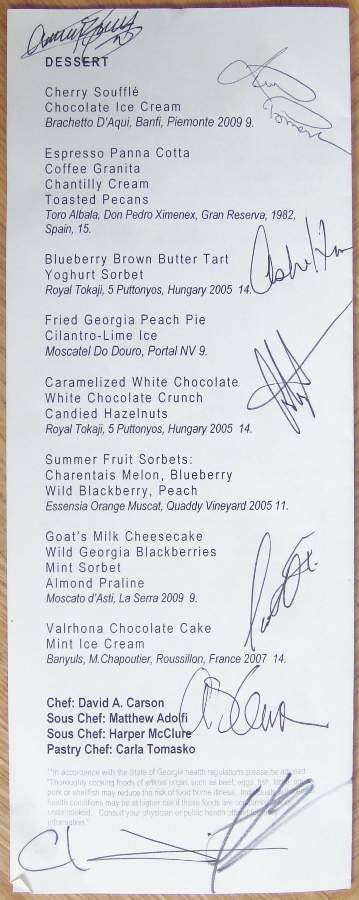 DESSERT
Cherry Soufflé
Chocolate Ice Cream
Brachetto D'Aqui, Banfi, Piemonte 2009 9.
Espresso Panna Cotta
Coffee Granita
Chantilly Cream
Toasted Pecans
Toro Albala, Don Pedro Ximenex, Gran Reserva, 1982,
Spain, 15.
Blueberry Brown Butter Tart
Yoghurt Sorbet
Royal Tokaji, 5 Puttonyos, Hungary 2005 14.
Fried Georgia Peach Pie
Cilantro-Lime Ice
Moscatel Do Douro, Portal NV 9.
Caramelized White Chocolate
White Chocolate Crunch
Candied Hazelnuts
Royal Tokaji, 5 Puttonyos, Hungary 2005 14.
Summer Fruit Sorbets:
Charentais Melon, Blueberry
Wild Blackberry, Peach
Essensia Orange Muscat, Quaddy Vineyard 2005 11.
Goat's Milk Cheesecake
Wild Georgia Blackberries
Mint Sorbet
Almond Praline
Moscato d'Asti, La Serra 2009 9.
Valrhona Chocolate Cake
Mint Ice Cream
Banyuls, M.Chapoutier, Roussillon, France 2007 14.
Chef: David A. Carson
Sous Chef: Matthew Adolfi
Sous Chef: Harper McClure
Pastry Chef: Carla Tomasko
"In accordance with the State of Georgia health regulations please be advised:
"Thoroughly cooking foods of animal origin, such as beef, eggs, fish,
pork or shellfish may reduce the risk of food borne illness.
health conditions may be at higher risk if those foods are
undercooked. Consult your physician or public health official for
information."